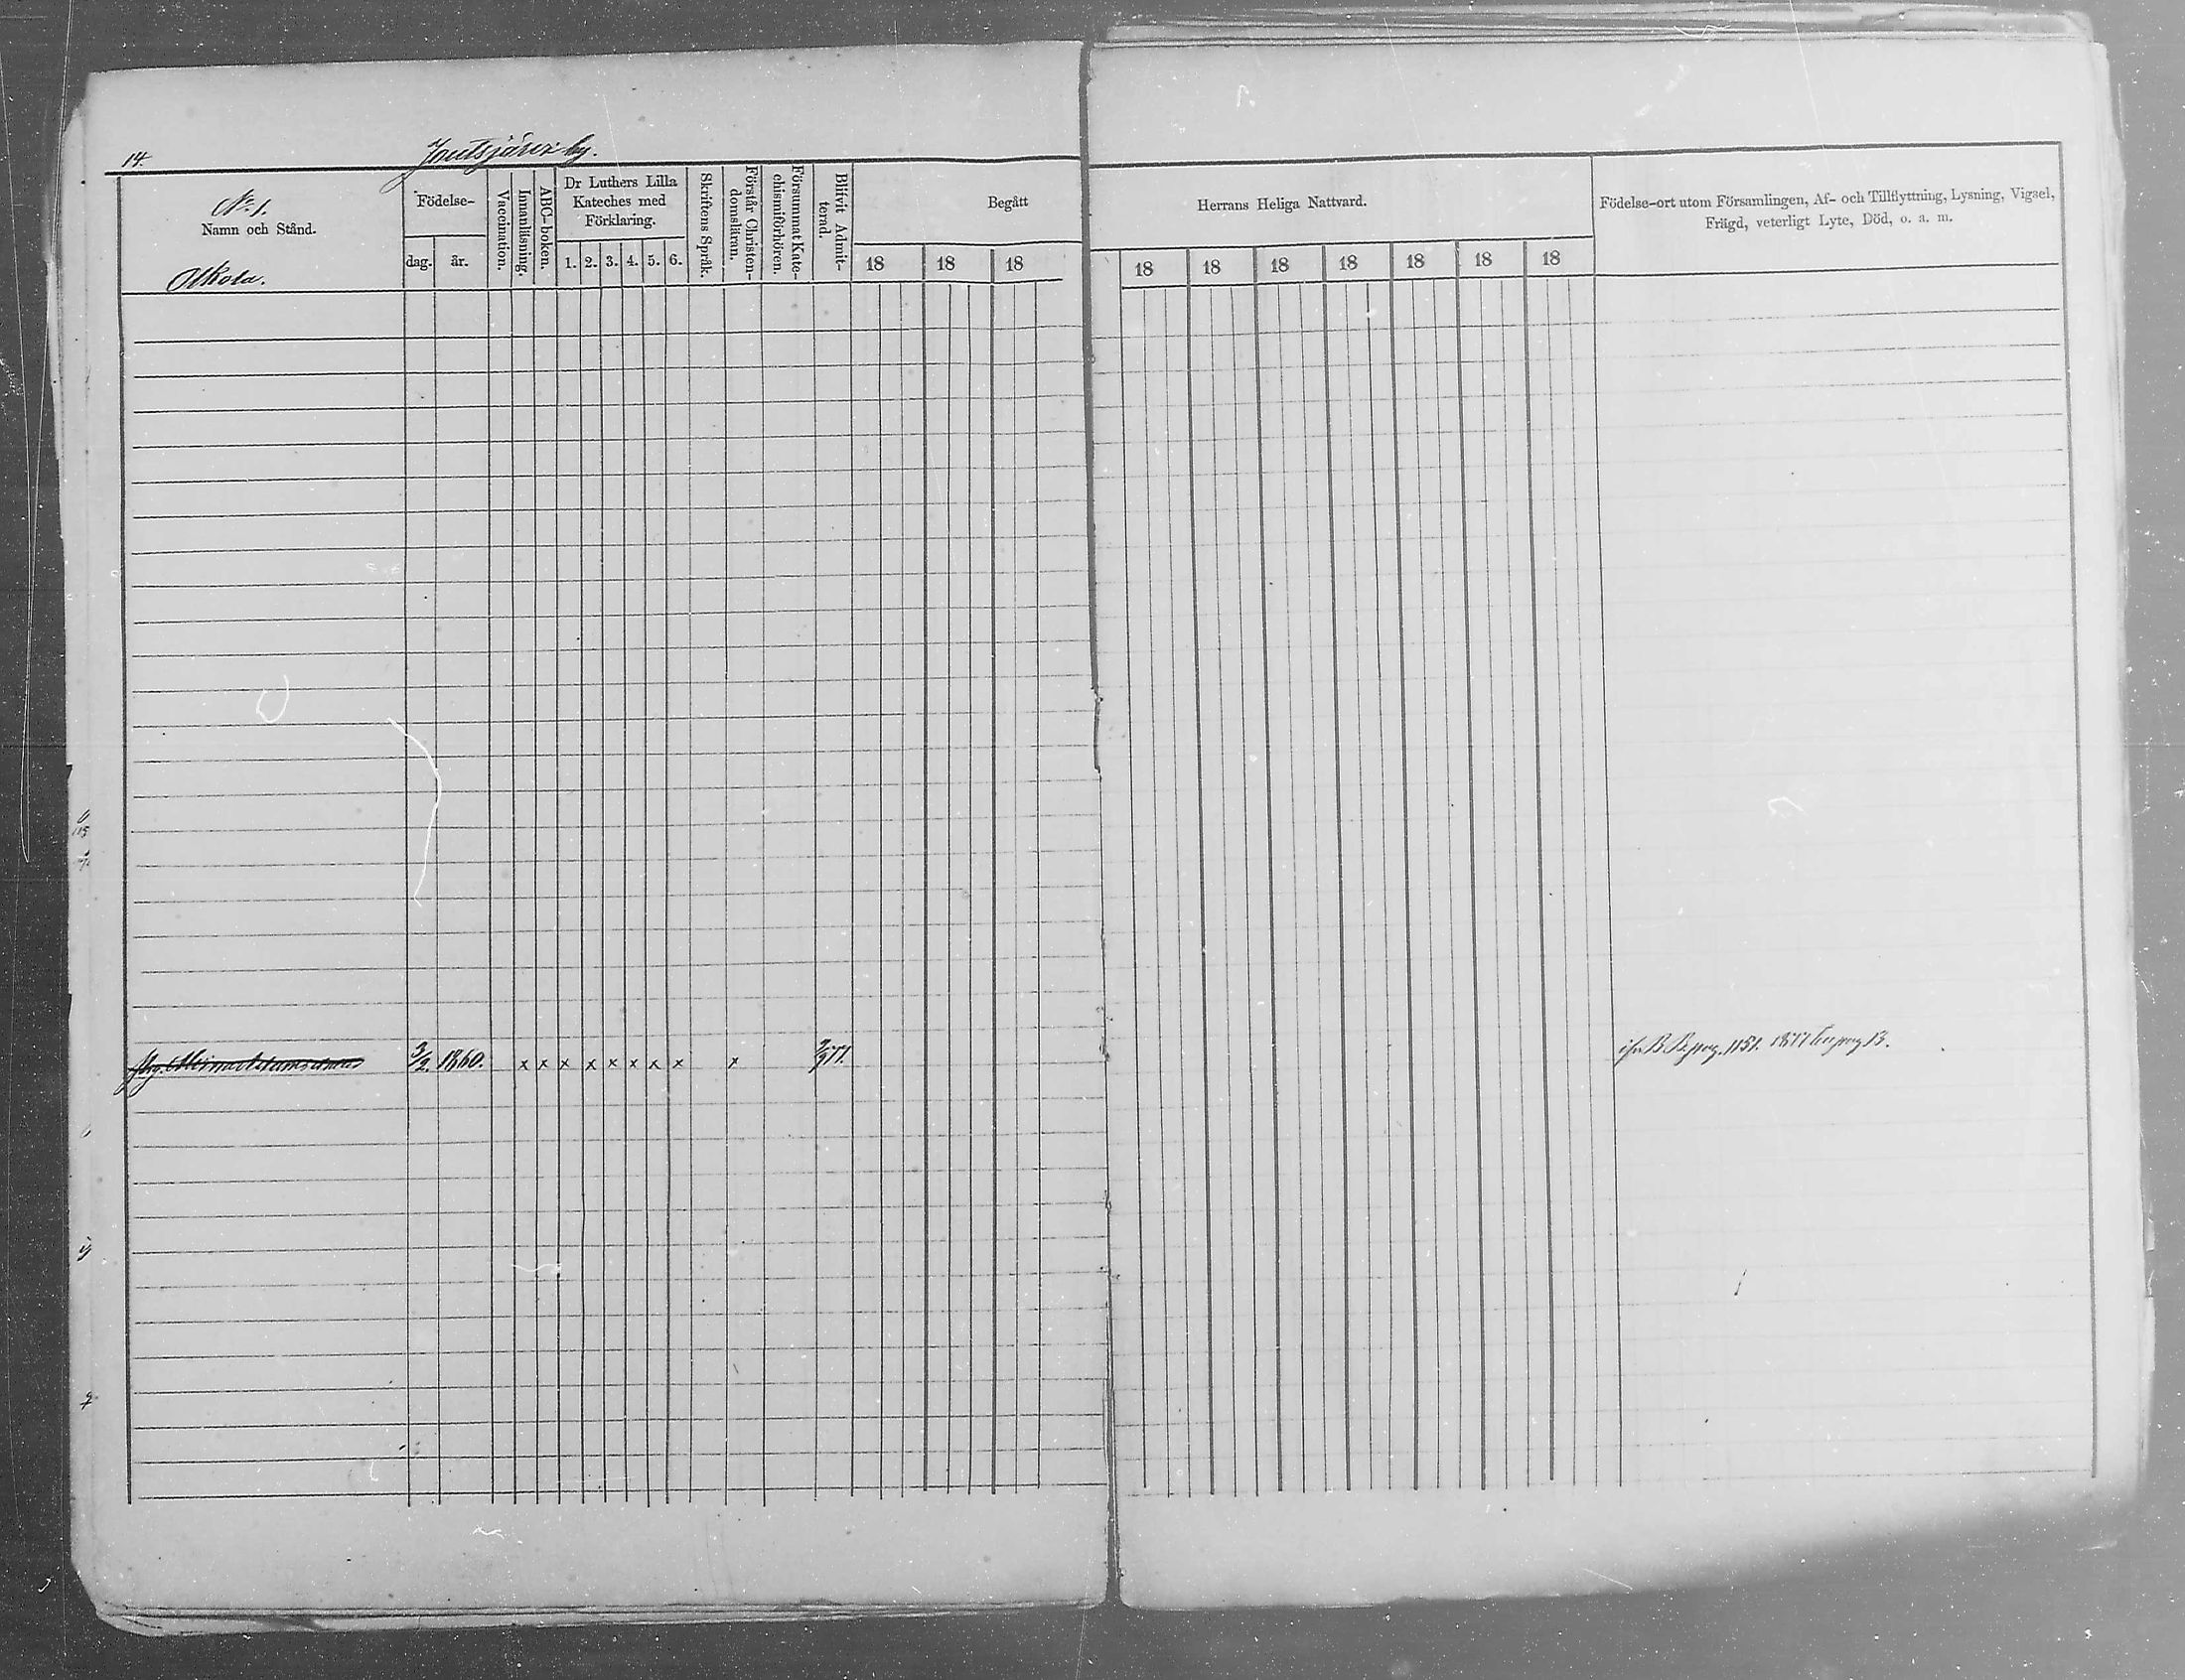 14.
Joutsjärvi by.
No 1.
Namn och Stånd.
Ulkola.
Födelse-
dag.
år.
Vaccination.
Innanläsning.
ABC-boken.
Dr Luthers Lilla
Kateches med
Förklaring.
1. 2. 3. 4. 5. 6.
Skriftens Språk.
Förstår Christen-
domsläran.
Försummat Kate-
chismiförhören.
Blifvit Admit-
terad.
Begått
18 18 18
Herrans Heliga Nattvard.
18 18 18 18 18 18 18
Födelse-ort utom Församlingen, Af- och Tillflyttning, Lysning, Vigsel,
Frägd, veterligt Lyte, Död, o. a. m.
3/2. 1860. x x x x x x x x x
B. pag. 1151. 1877 pag 13.